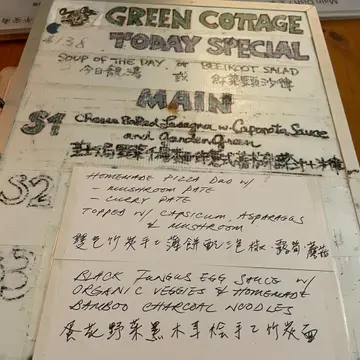 GREEN COTTAGE
TODAY SPECIAL
SOUP OF THE DAY or BEETROOT SALAD
今日靚湯 或 紅菜頭沙律
MAIN
S1
Cheese Baked Lasagna w. Caponata Sauce
and Garden Green
S2
HOMEMADE PIZZA DUO w/
- MUSHROOM PATE
- CURRY PATE
TOPPED w/ CAPSICUM, ASPARAGUS
& MUSHROOM
雙色竹炭手工薄餅配三色椒 露筍 蘑菇
BLACK FUNGUS EGG SAUCE w/
ORGANIC VEGGIES & HOMEMADE
BAMBOO CHARCOAL NOODLES
蛋花野菜黑木耳燴手工竹炭面